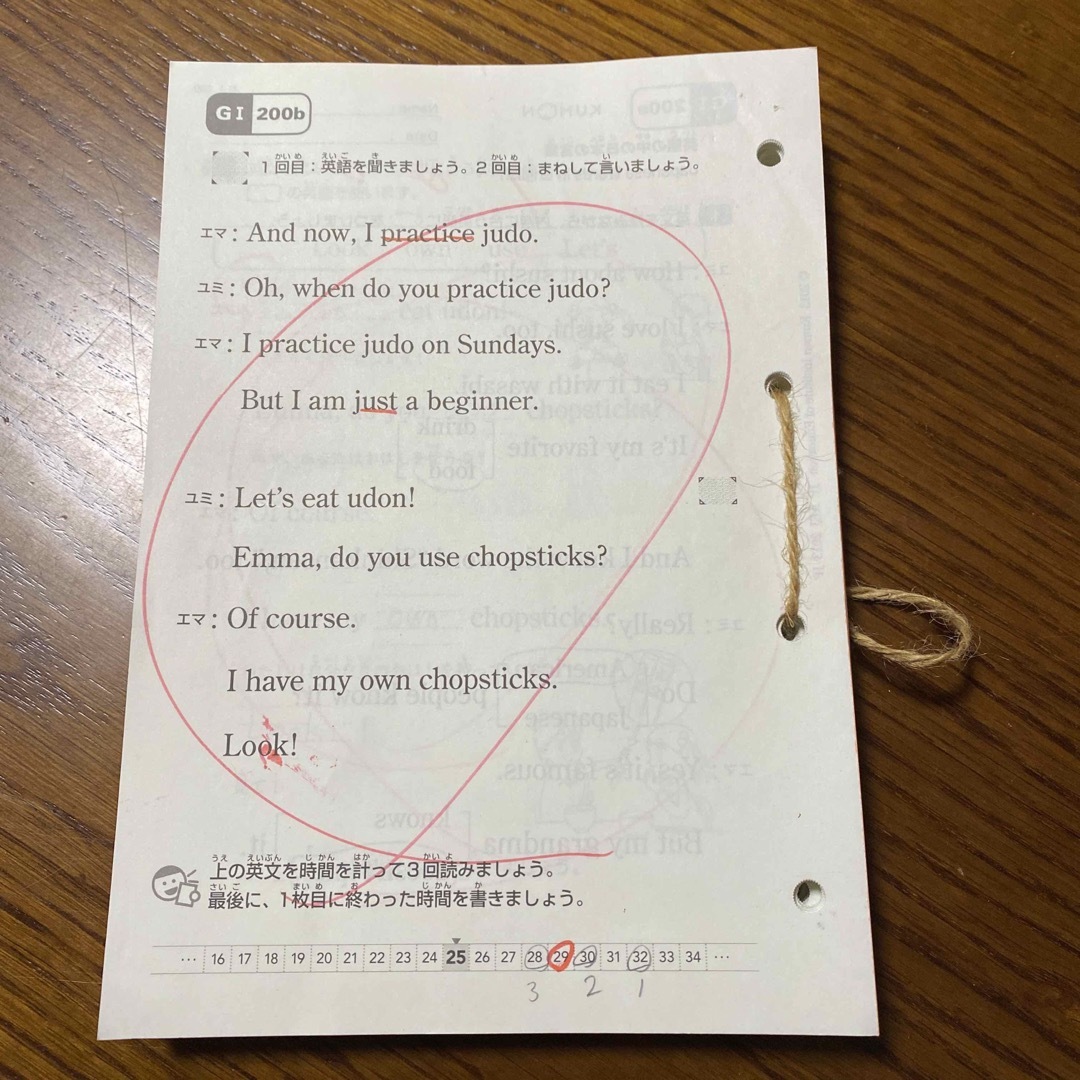 GI 200b
1回目：英語を聞きましょう。2回目：まねして言いましょう。
エマ: And now, I practice judo.
ユミ: Oh, when do you practice judo?
エマ: I practice judo on Sundays.
But I am just a beginner.
ユミ: Let's eat udon!
Emma, do you use chopsticks?
エマ: Of course.
I have my own chopsticks.
Look!
上の英文を時間を計って3回読みましょう。
最後に、1枚目に終わった時間を書きましょう。
… 16 17 18 19 20 21 22 23 24 25 26 27 28 29 30 31 32 33 34 …
3 2 1